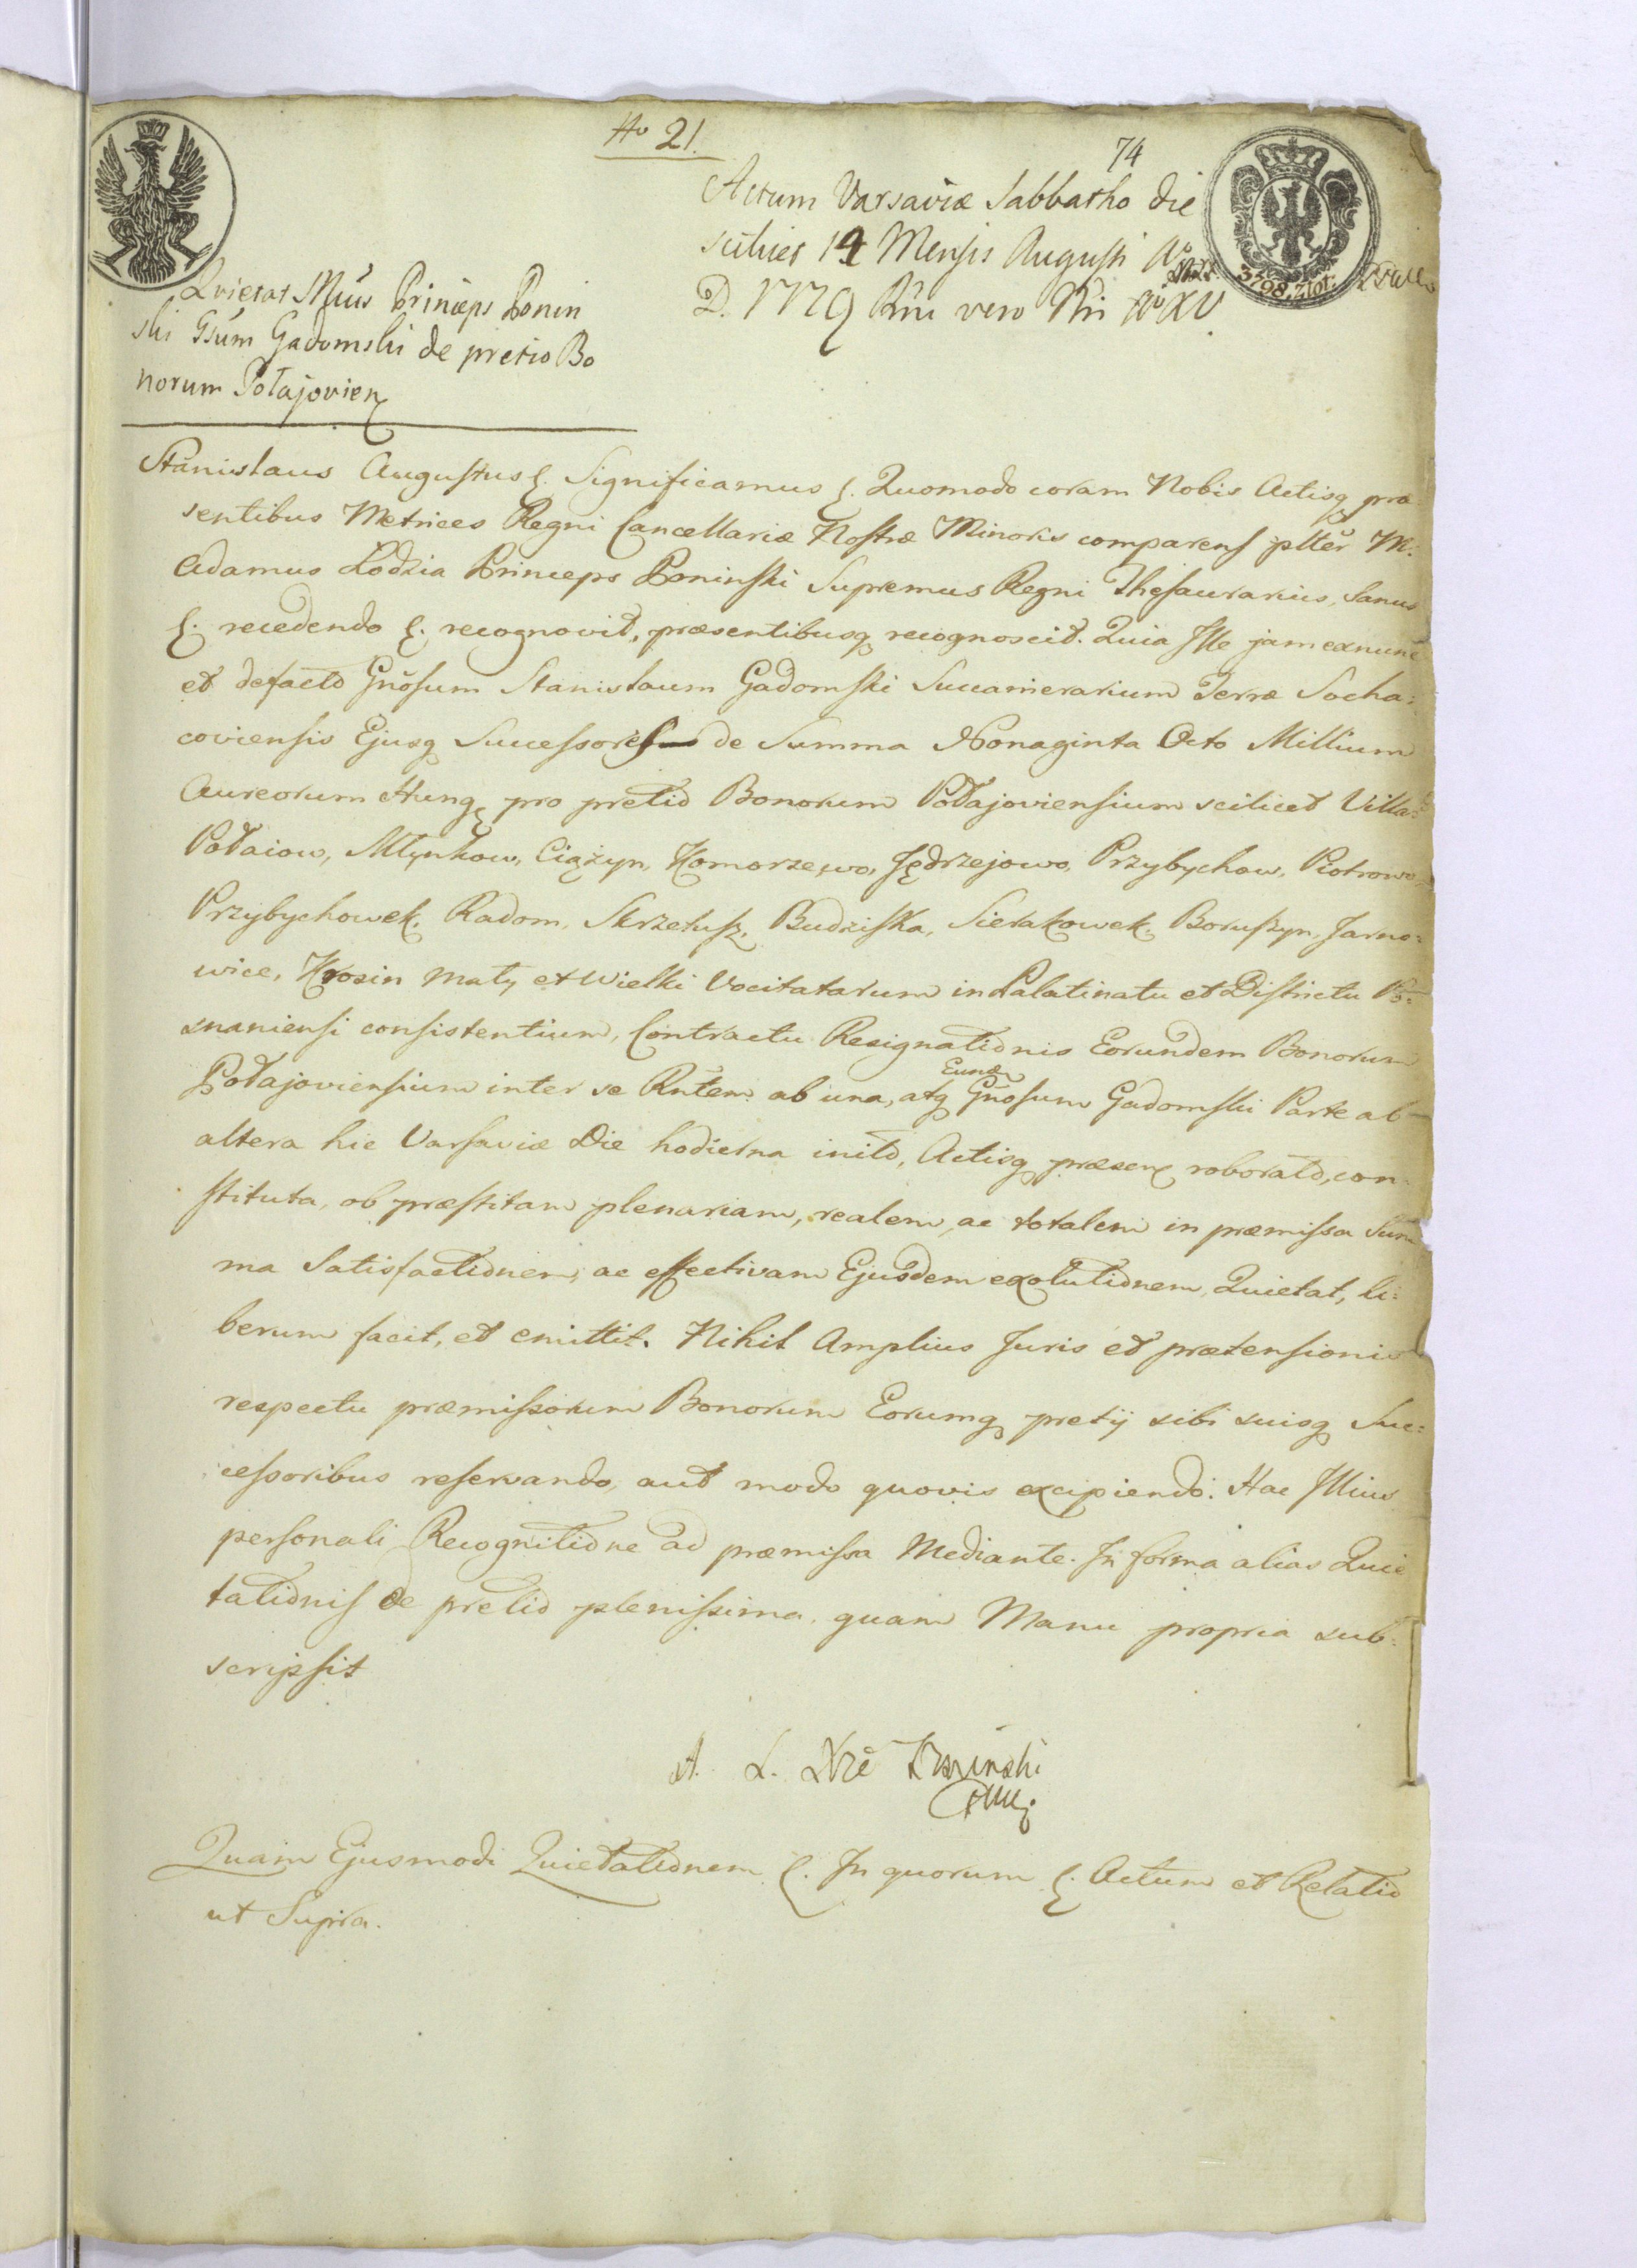 No 21.
74
Actum Varsaviæ Sabbatho die
scilicet 14 Mensis Augusti Ao
D. 1779 Rni vero Nri Ao XV
3798. złot.
Quietat Mcus Princeps Ponin
ski Gsum Gadomski de pretio Bo
norum Połajovien
Stanislaus Augustus &. Significamus &. Quomodo coram Nobis Actisq præ
sentibus Metrices Regni Cancellariæ Nostræ Minoris comparens plter M.
Adamus Łodzia Princeps Poninski Supremus Regni Thesaurarius, Sanus
&. recedendo &. recognovit, præsentibusq recognoscit. Quia Ille jam exnunc
et defacto Gnosum Stanislaum Gadomski Succamerarium Terræ Socha:
coviensis Ejusq Successores de Summa Nonaginta Octo Millium
Aureorum Hung pro pretio Bonorum Połajoviensium scilicet Villa:
Połaiow, Młynkow, Ciążyn, Komorzewo, Jędrzejowo, Przybychow, Piotrowo
Przybychowek, Radom, Skrzetusz, Budziska, Sierakowek, Boruszyn, Jarno:
wice, Krosin mały et Wielki Vocitatarum in Palatinatu et Districtu Po:
snaniensi consistentium, Contractu Resignationis Eorundem Bonorum
Połajoviensium inter se Rntem ab una, atq Eund Gnosum Gadomski Parte ab
altera hic Varsaviæ Die hodierna inito, Actisq præsen roborato, con
stituta, ob præstitam plenariam, realem, ac totalem in præmissa Sum
ma Satisfactionem, ac effectivam Ejusdem exolutionem, Quietat, li:
berum facit, et emittit. Nihil Amplius Juris et prætensionis
respectu præmissorum Bonorum Eorumq pretij sibi suisq Suc:
cessoribus reservando, aut modo quovis excipiendo. Hac Illius
personali Recognitione ad præmissa Mediante. In forma alias Quie
tationis de pretio plenissima, quam Manu propria sub:
scripsit
A. Ł. Xże Poninski
Quam Ejusmodi Quietationem &. In quorum &. Actum et Relatio
ut Supra.